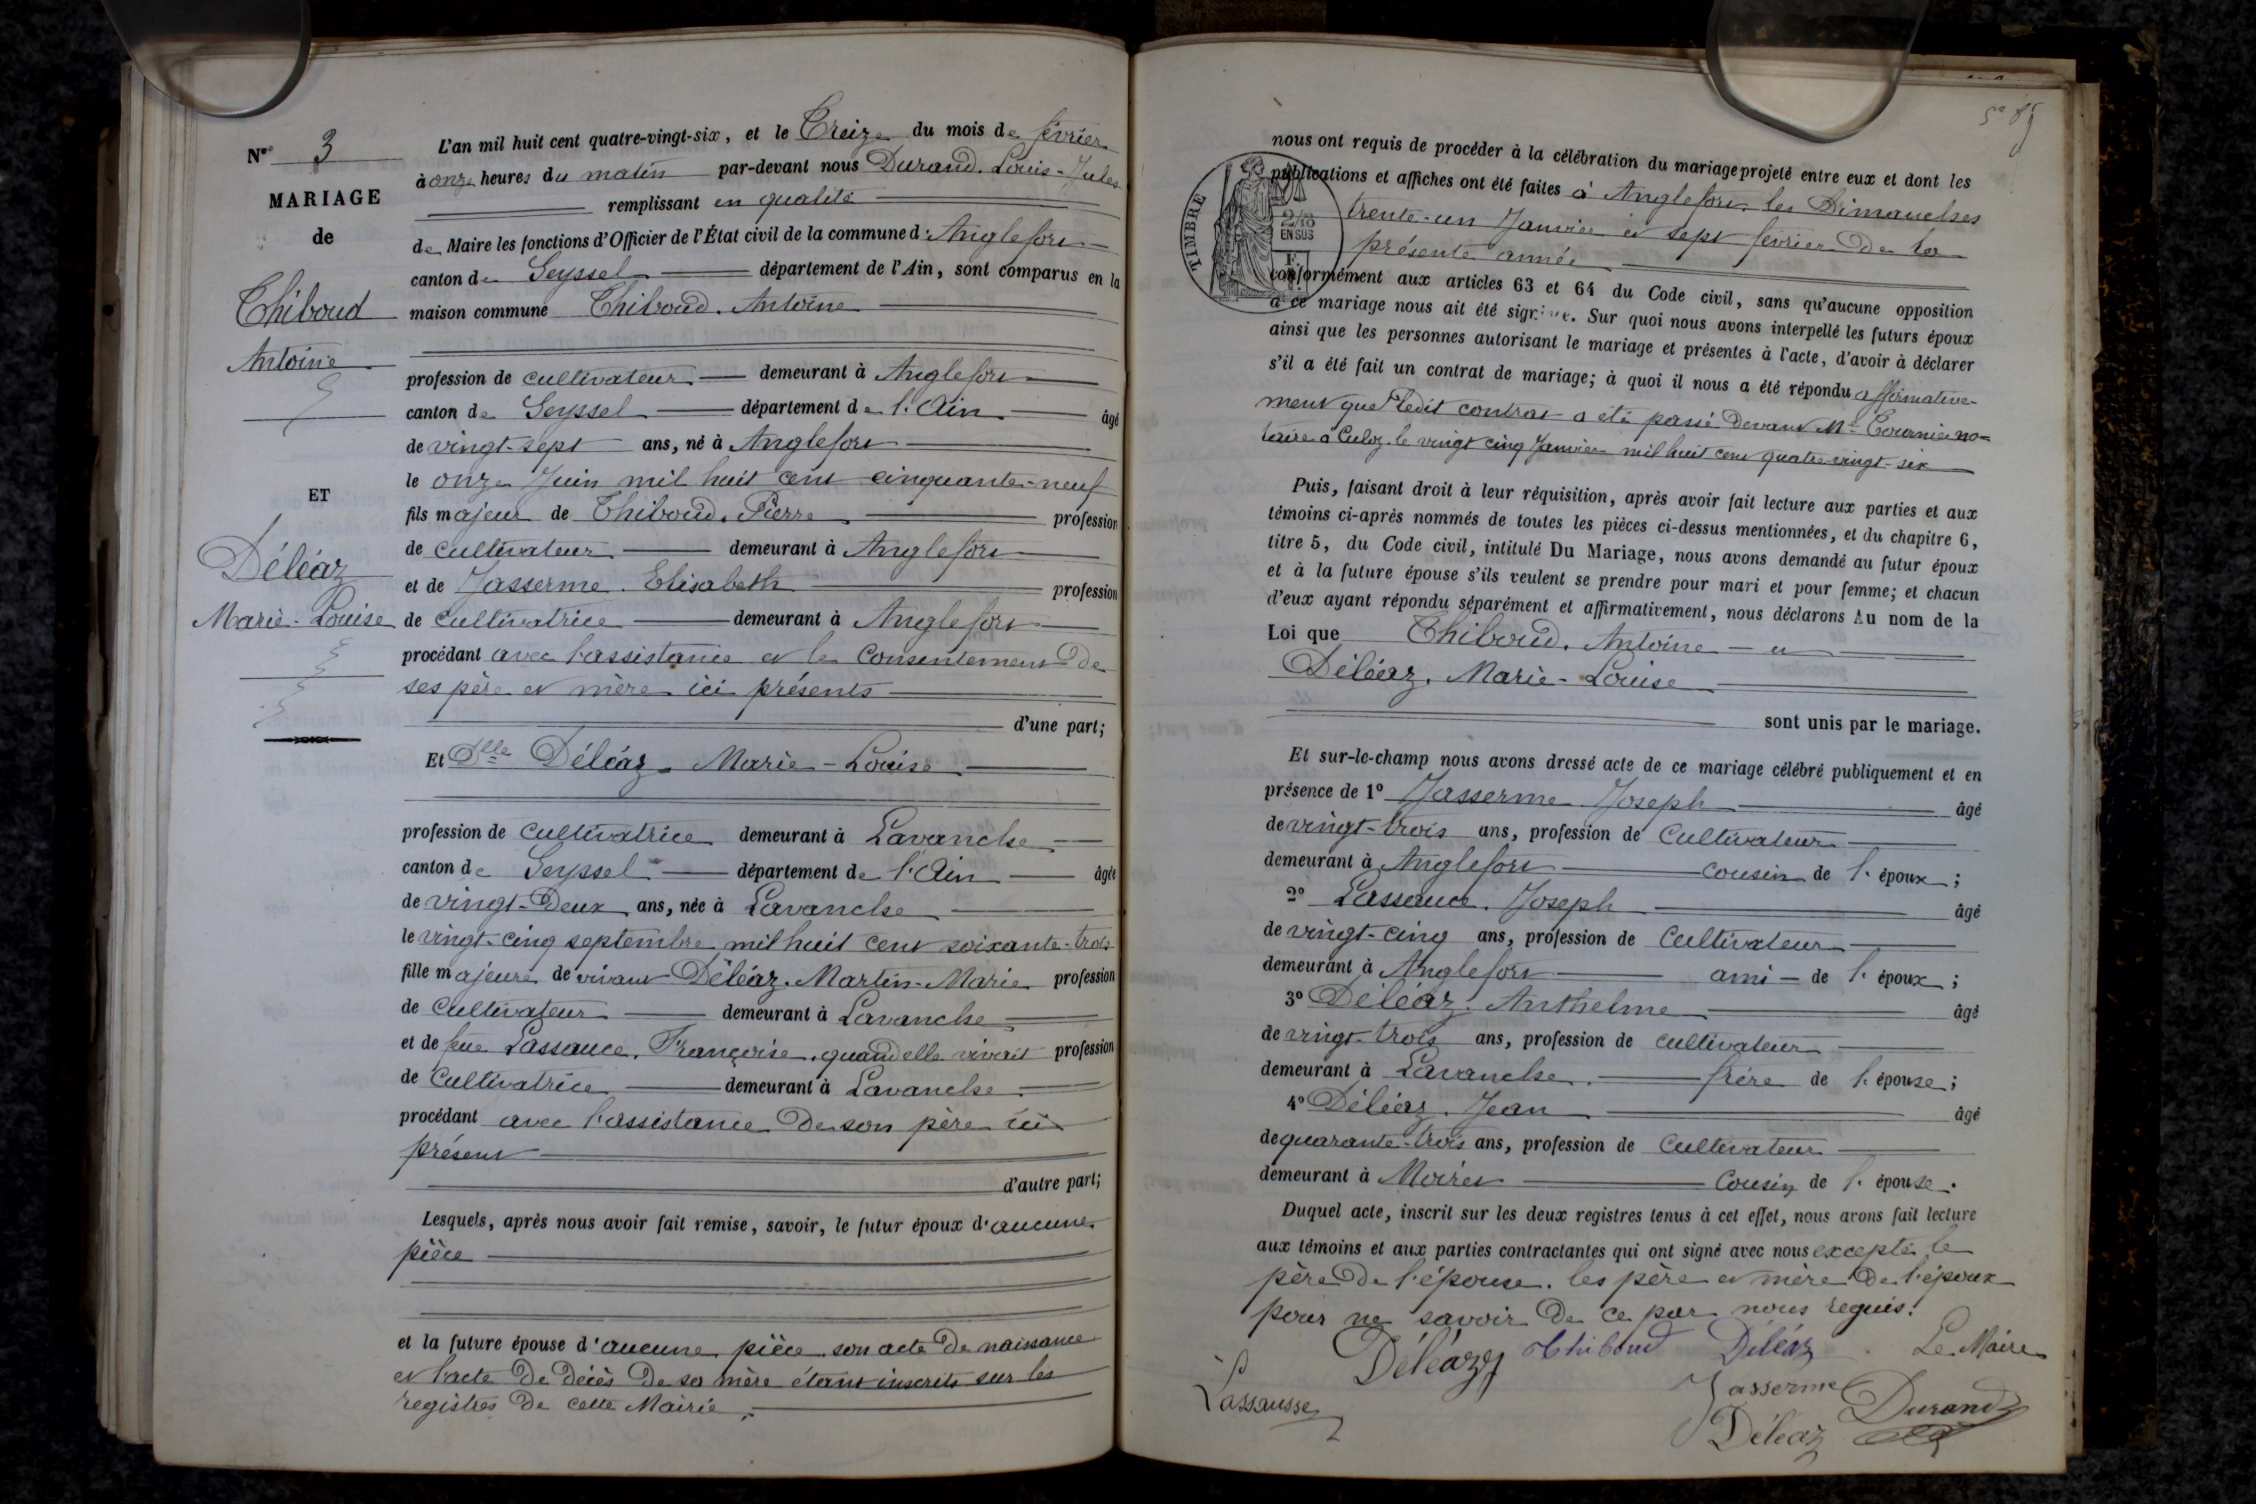 N° 3
MARIAGE
de
Thiboud
Antoine
ET
Déléaz
Marie-Louise
L'an mil huit cent quatre-vingt-six, et le Treize du mois de février
à onze heures du matin par-devant nous Durand. Louis-Jules
remplissant en qualité
de Maire les fonctions d'Officier de l'État civil de la commune d'Anglefort
canton de Seyssel département de l'Ain, sont comparus en la
maison commune Thiboud. Antoine
profession de cultivateur demeurant à Anglefort
canton de Seyssel département de l'Ain âgé
de vingt-sept ans, né à Anglefort
le onze Juin mil huit cent cinquante-neuf
fils majeur de Thiboud. Pierre profession
de cultivateur demeurant à Anglefort
et de Jasserme. Elisabeth profession
de cultivatrice demeurant à Anglefort
procédant avec l'assistance et le consentement de
ses père et mère ici présents
d'une part;
Et Dlle Déléaz. Marie-Louise
profession de cultivatrice demeurant à Lavanche
canton de Seyssel département de l'Ain âgée
de vingt-deux ans, née à Lavanche
le vingt-cinq septembre mil huit cent soixante-trois
fille majeure de vivant Déléaz. Martin-Marie profession
de cultivateur demeurant à Lavanche
et de feue Lassauce. Françoise. quand elle vivait profession
de cultivatrice demeurant à Lavanche
procédant avec l'assistance de son père ici
présent
d'autre part;
Lesquels, après nous avoir fait remise, savoir, le futur époux d'aucune
pièce
et la future épouse d'aucune pièce son acte de naissance
et l'acte de décès de sa mère étant inscrits sur les
registres de cette Mairie.
TIMBRE
2/10
EN SUS
nous ont requis de procéder à la célébration du mariage projeté entre eux et dont les
publications et affiches ont été faites à Anglefort les Dimanches
trente-un Janvier et sept février de la
présente année
conformément aux articles 63 et 64 du Code civil, sans qu'aucune opposition
à ce mariage nous ait été signifiée. Sur quoi nous avons interpellé les futurs époux
ainsi que les personnes autorisant le mariage et présentes à l'acte, d'avoir à déclarer
s'il a été fait un contrat de mariage; à quoi il nous a été répondu affirmative-
ment que ledit contrat a été passé devant Me Tournier no=
taire à Culoz le vingt cinq Janvier mil huit cent quatre-vingt-six
Puis, faisant droit à leur réquisition, après avoir fait lecture aux parties et aux
témoins ci-après nommés de toutes les pièces ci-dessus mentionnées, et du chapitre 6,
titre 5, du Code civil, intitulé Du Mariage, nous avons demandé au futur époux
et à la future épouse s'ils veulent se prendre pour mari et pour femme; et chacun
d'eux ayant répondu séparément et affirmativement, nous déclarons Au nom de la
Loi que Thiboud. Antoine et
Déléaz. Marie-Louise
sont unis par le mariage.
Et sur-le-champ nous avons dressé acte de ce mariage célébré publiquement et en
présence de 1° Jasserme Joseph âgé
de vingt-trois ans, profession de cultivateur
demeurant à Anglefort cousin de l'époux;
2° Lassauce. Joseph âgé
de vingt-cinq ans, profession de cultivateur
demeurant à Anglefort ami de l'époux;
3° Déléaz. Anthelme âgé
de vingt-trois ans, profession de cultivateur
demeurant à Lavanche. frère de l'épouse;
4° Déléaz. Jean âgé
de quarante-trois ans, profession de cultivateur
demeurant à Moiret cousin de l'épouse.
Duquel acte, inscrit sur les deux registres tenus à cet effet, nous avons fait lecture
aux témoins et aux parties contractantes qui ont signé avec nous excepté le
père de l'épouse. les père et mère de l'époux
pour ne savoir de ce par nous requis.
Déléaz Thiboud Déléaz Le Maire
Lassausse Jasserme Durand
Déléaz